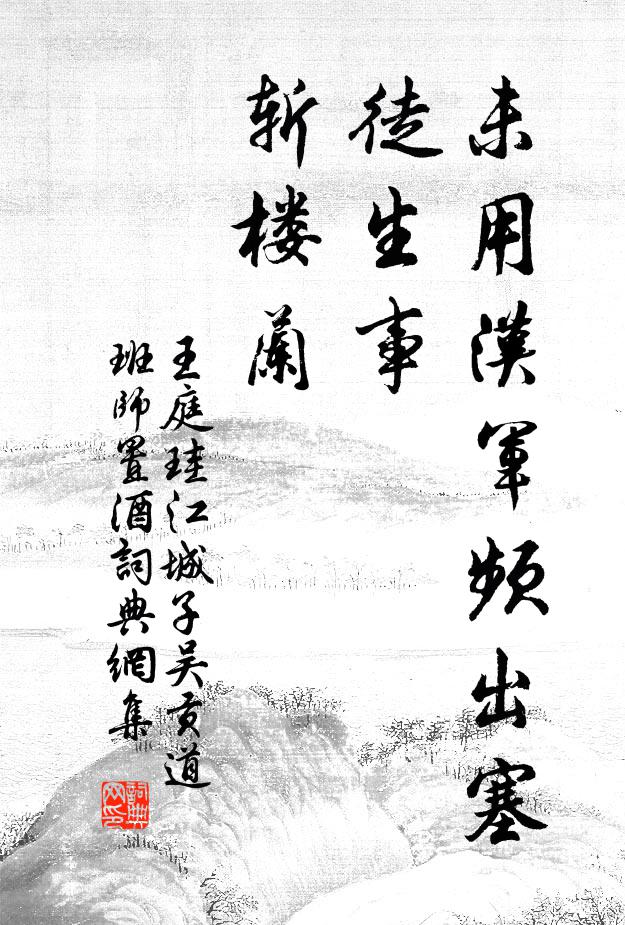 未用漢軍頻出塞
徒生事
斬楼蘭
王庭珪江城子吴贡道
班師置酒詞典網集
詞典
网印